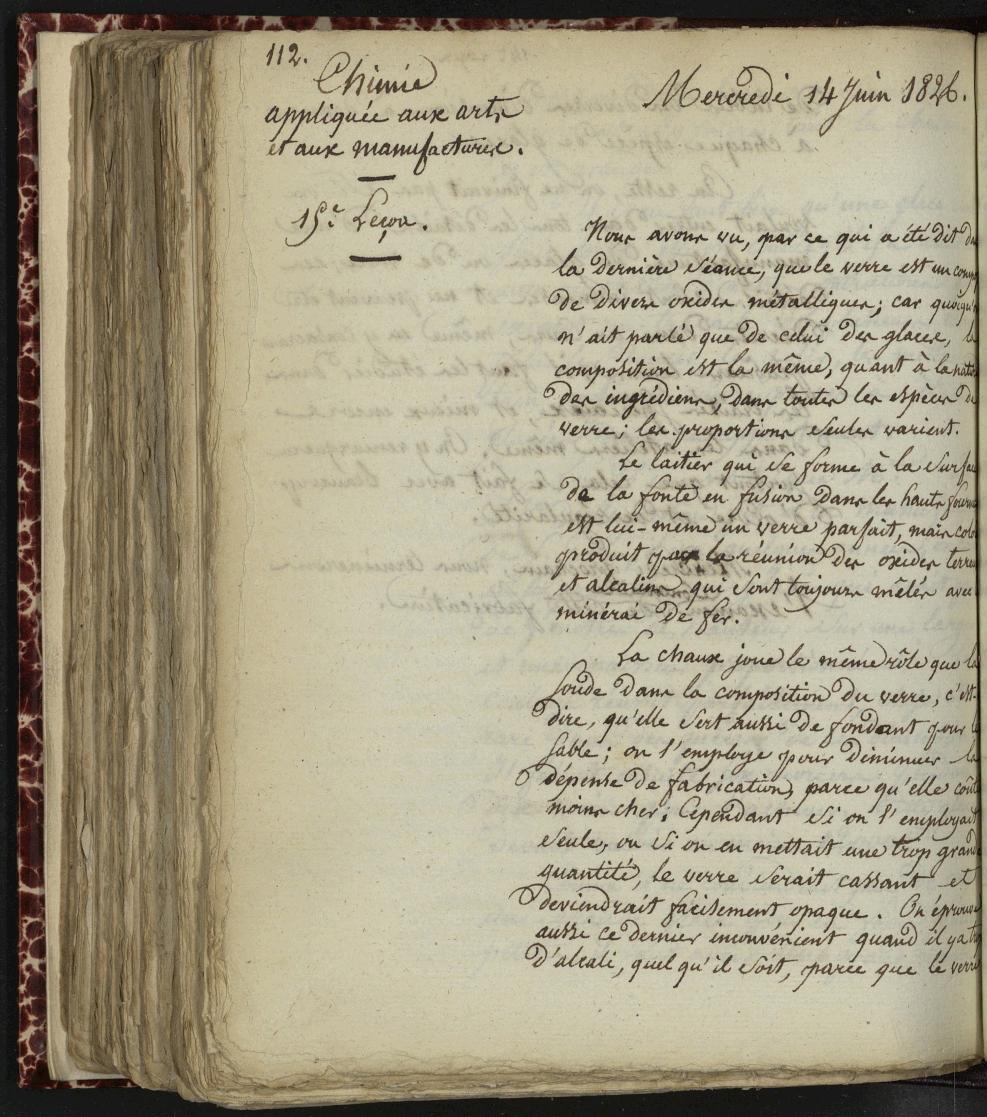 112.
Chimie
appliquée aux arts
et aux manufactures.
Mercredi 14 Juin 1826.
15e. Leçon.
Nous avons vu, par ce qui a été dit da
la dernière séance, que le verre est un comp
de divers oxides métalliques; car quoiqu'
n'ait parlé que de celui des glaces, la
composition est la même, quant à la natu
des ingrédiens, dans toutes les espèces de
verre; les proportions seules varient.
Le laitier qui se forme à la surfac
de la fonte en fusion dans les hauts fourn
est lui-même un verre parfait, mais colo
produit par la réunion des oxides terreu
et alcalins qui sont toujours mêlés avec
minérai de fer.
La chaux joue le même rôle que la
soude dans la composition du verre, c'est-
dire, qu'elle sert aussi de fondant pour le
sable; on l'employe pour diminuer la
dépense de fabrication, parce qu'elle coût
moins cher; Cependant si on l'employait
seule, ou si on en mettait une trop grande
quantité, le verre serait cassant et
deviendrait facilement opaque. On éprouve
aussi ce dernier inconvénient quand il y a tr
d'alcali, quel qu'il soit, parce que le verre